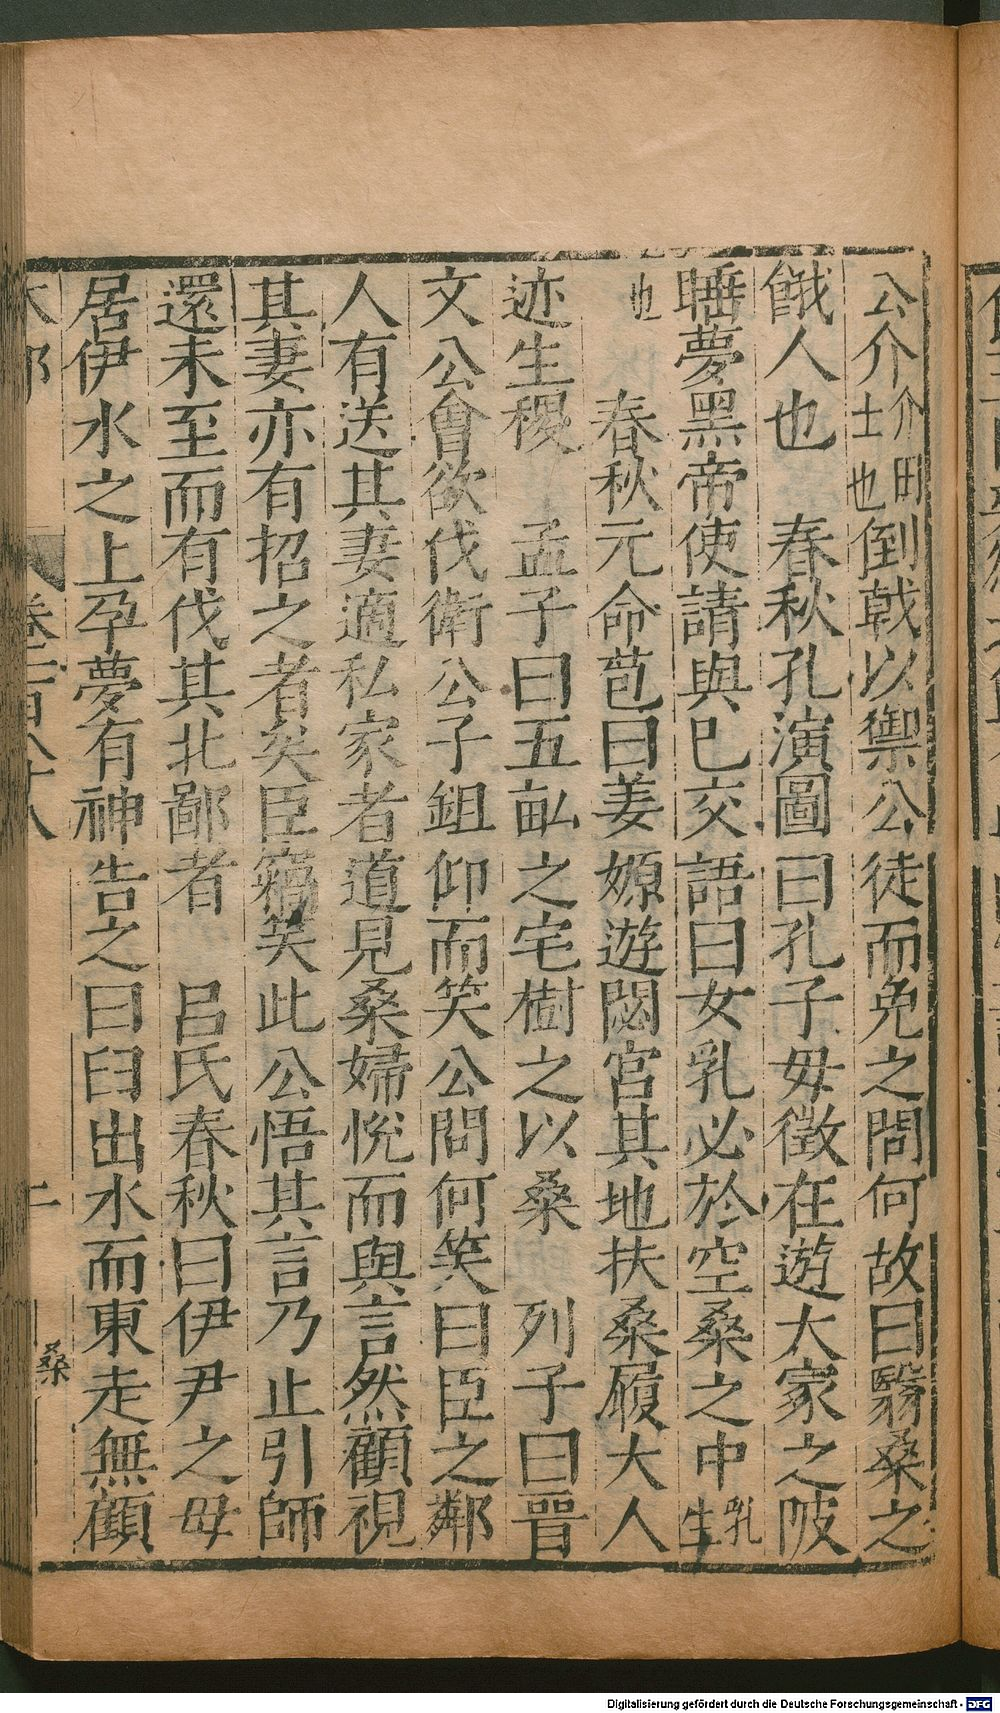 公介介田士也倒戟以禦公徒而免之問何故曰翳桑之
餓人也　春秋孔演圖曰孔子母徵在遊大冢之陂
睡夢黑帝使請與已交語曰女乳必於空桑之中乳生
也　春秋元命苞曰姜嫄遊閟宮其地扶桑履大人
迹生稷　孟子曰五畝之宅樹之以桑　列子曰晉
文公會欲伐衛公子鉏仰而笑公問何笑曰臣之鄰
人有送其妻適私家者道見桑婦悅而與言然顧視
其妻亦有招之者矣臣竊笑此公悟其言乃止引師
還未至而有伐其北鄙者　呂氏春秋曰伊尹之母
居伊水之上孕夢有神告之曰臼出水而東走無顧
木部
卷二百八十八
二
桑
Digitalisierung gefördert durch die Deutsche Forschungsgemeinschaft - DFG